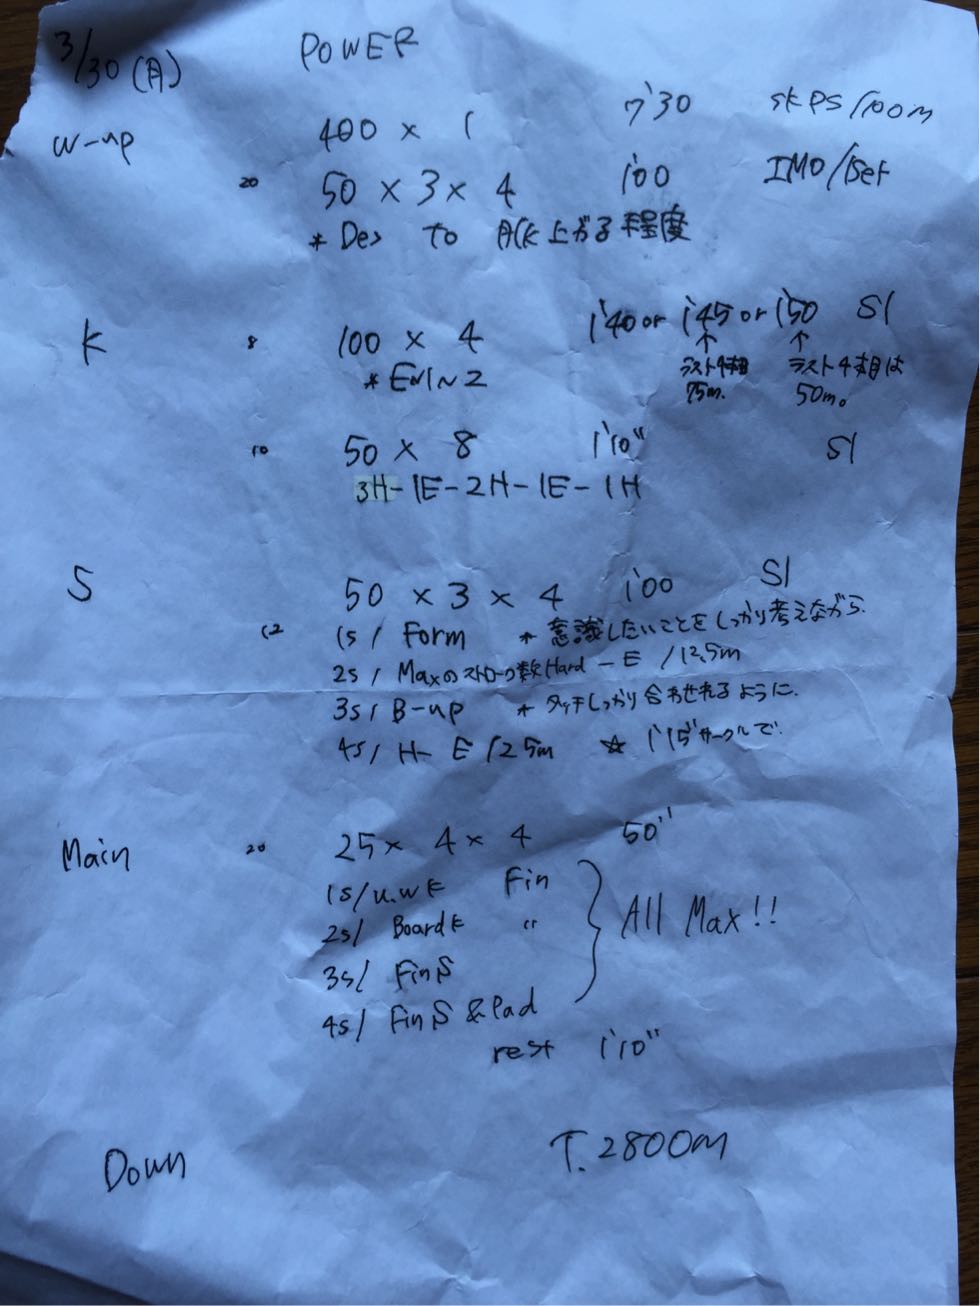 3/30 (月) POWER
W-up 400 × 1 7'30 SKPS/100m
20 50 × 3 × 4 1'00 IMO/1set
* Des to 上がる程度
K 8 100 × 4 1'40 or 1'45 or 1'50 S1
↑ ↑
* EN1~2 ラスト4本目 ラスト4本目は
75m. 50m。
10 50 × 8 1'10" S1
3H-1E-2H-1E-1H
S 50 × 3 × 4 1'00 S1
12 1s/ Form * 意識したいことをしっかり考えながら.
2s/ Maxのストローク数Hard - E /12.5m
3s/ B-up * タッチしっかり合わせれるように.
4s/ H- E /25m ☆ 1'15"サークルで.
Main 20 25 × 4 × 4 50"
1s/ u.w K Fin
2s/ Board K 〃
All Max!!
3s/ Fin S
4s/ Fin S & Pad
rest 1'10"
Down T. 2800m